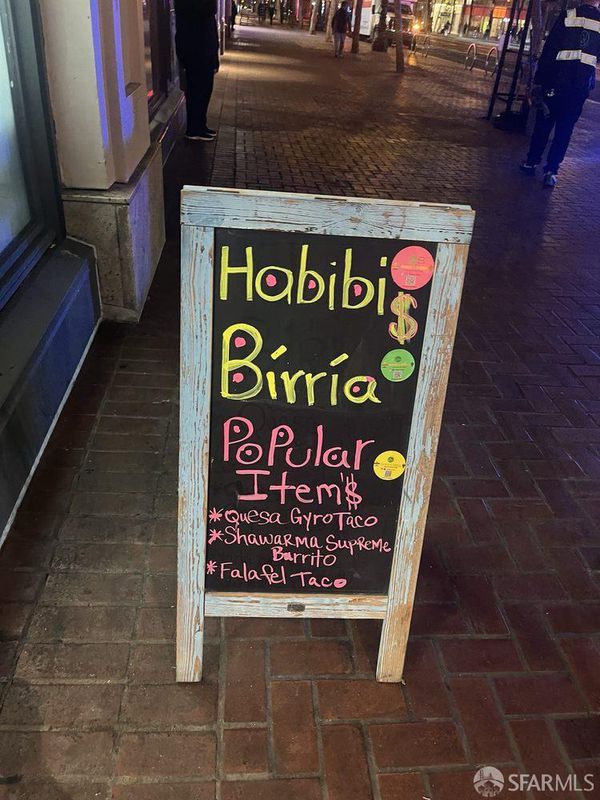 Habibi$
Bírría
PoPular
Item'$
*Quesa Gyro Taco
*Shawarma Supreme
Burrito
*Falafel Taco
SFARMLS